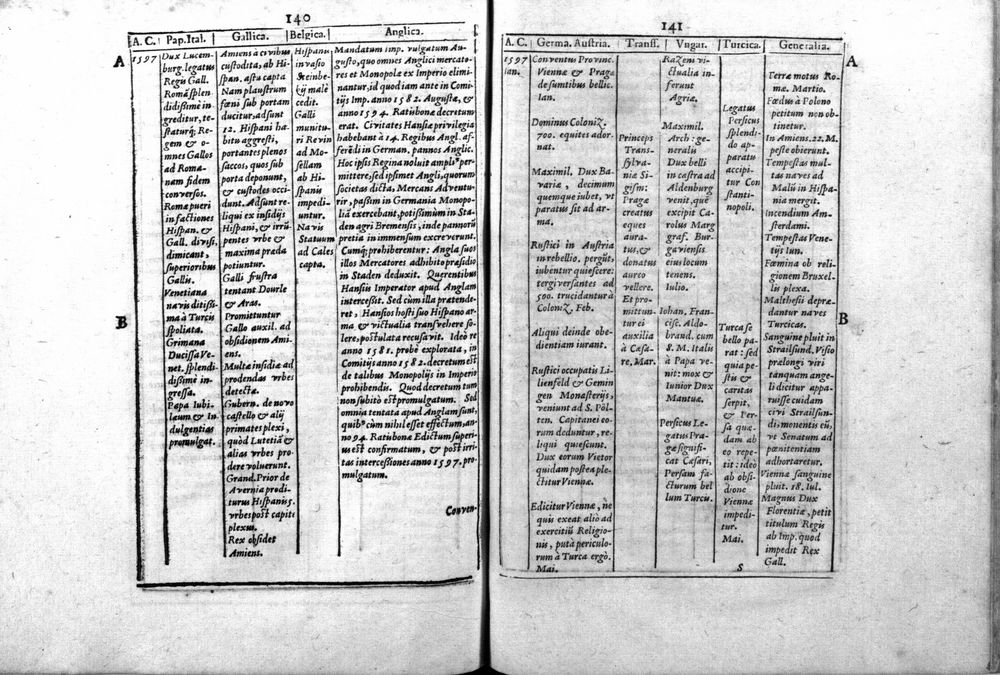 140
A. C.
Pap. Ital.
Gallica.
Belgica.
Anglica.
A
B
1597
Dux Lucem-
burg. legatus
Regis Gall.
Romã splen-
didißimè in-
greditur, te-
staturq; Re-
gem & o-
mnes Gallos
ad Roma-
nam fidem
conversos.
Romæ pueri
in factiones
Hispan. &
Gall. divisi,
dimicant,
superioribus
Gallis.
Venetiana
navis ditißi-
ma à Turcis
spoliata.
Grimana
Ducissa Ve-
net. splendi-
dißimè in-
gressa.
Papa Iubi-
læum & In-
dulgentias
promulgat.
Amiens à civibus
custodita, ab Hi-
span. astu capta
Nam plaustrum
fœni sub portam
ducitur, adsunt
12. Hispani ha-
bitu agresti,
portantes plenos
saccos, quos sub
porta deponunt,
& custodes occi-
dunt. Adsunt re-
liqui ex insidijs
Hispani, & irrũ-
pentes vrbe &
maxima præda
potiuntur.
Galli frustra
tentant Dourle
& Aras.
Promittuntur
Gallo auxil. ad
obsidionem Ami-
ens.
Multæ insidiæ ad
prodendas vrbes
detectæ.
Gubern. de novo
castello & alij
primates plexi,
quòd Lutetiã &
alias vrbes pro
dere voluerunt.
Grand. Prior de
Avernia prodi-
turus Hispanis 5.
vrbes post capite
plexus.
Rex obsidet
Amiens.
Hispani
invasio
Steinbe-
kij malè
cedit.
Galli
munitu-
ri Revin
ad Mo-
sellam
ab Hi-
spanis
impedi-
untur.
Navis
Statuum
ad Cales
capta.
Mandatum imp. vulgatum Au-
gusto, quo omnes Anglici mercato-
res et Monopolæ ex Imperio elimi-
nantur, id quod iam ante in Comi-
tijs Imp. anno 1582. Augustæ, &
anno 1594. Ratisbonæ decretum
erat. Civitates Hansiæ privilegia
habebant à 14. Regibus Angl. af-
ferẽdi in German. pannos Anglic.
Hoc ipsis Regina noluit ampliꝰ per-
mittere, sed ipsimet Angli, quorum
societas dicta, Mercans Adventu-
rir, passim in Germania Monopo-
liã exercebant, potißimum in Sta-
den agri Bremensis, inde pannorũ
pretia in immensum excreverunt.
Cumq; prohiberentur: Angla suos
illos Mercatores adhibito præsidio
in Staden deduxit. Querentibus
Hansiis Imperator apud Anglam
interceßit. Sed cùm illa prætende-
ret, Hansios hosti suo Hispano ar-
ma & victualia transvehere so-
lere, postulata recusavit. Ideò re
anno 1581. probè explorata, in
Comitijs anno 1582. decretum est
de talibus Monopolijs in Imperio
prohibendis. Quod decretum tum
non subitò est promulgatum. Sed
omnia tentata apud Anglam sunt,
quibꝰ cùm nihil esset effectum, an-
no 94. Ratisbonæ Edictum superi-
us est confirmatum, & post irri-
tas intercessiones anno 1597. pro-
mulgatum.
Conven-
141
A. C.
Germa. Austria.
Transs.
Vngar.
Turcica.
Generalia.
A
B
1597
Ian.
Conventus Provinc.
Viennæ & Pragæ
de sumtibus bellic.
Ian.
Dominus Coloniz.
700. equites ador-
nat.
Maximil. Dux Ba-
variæ, decimum
quemque iubet, vt
paratus sit ad ar-
ma.
Rustici in Austria
in rebellio. pergũt,
iubentur quiescere:
tergiversantes ad
500. trucidantur à
Coloniz. Feb.
Aliqui deinde obe-
dientiam iurant.
Rustici occupatis Li-
lienfeld & Gemin
gen Monasterijs,
veniunt ad S. Pöl-
ten. Capitanei eo-
rum deduntur, re-
liqui quiescunt.
Dux eorum Vietor
quidam postea ple-
ctitur Viennæ.
Edicitur Viennæ, ne
quis exeat aliò ad
exercitiũ Religio-
nis, putà periculo-
rum à Turca ergò.
Mai.
Princeps
Trans-
sylva-
niæ Si-
gism:
Pragæ
creatus
eques
aura-
tus, &
donatus
aureo
vellere.
Et pro-
mittun-
tur ei
auxilia
à Cæsa-
re. Mar.
Razeni vi-
ctualia in-
ferunt
Agriæ.
Maximil.
Arch: ge-
neralis
Dux belli
in castra ad
Aldenburg
venit, que
excipit Ca-
rolus Marg
graf. Bur-
gaviensis
eius locum
tenens.
Iulio.
Iohan. Fran-
cisc. Aldo-
brand. cum
8. M. Italis
à Papa ve-
nit: mox &
Iunior Dux
Mantuæ.
Persicus Le-
gatus Pra-
gæ signifi-
cat Cæsari,
Persam fa-
cturum bel
lum Turcis.
Legatus
Persicus
splendi-
do ap-
paratu
accipi-
tur Con
stanti-
nopoli.
Turca se
bello pa-
rat: sed
quia pe-
stis &
caritas
serpit,
& Per-
sa quæ-
dam ab
eo repe-
tit: ideo
ab obsi-
dione
Viennæ
impedi-
tur.
Mai.
Terræ motus Ro-
ma. Martio.
Fœdus à Polono
petitum non ob-
tinetur.
In Amiens. 22. M.
peste obierunt.
Tempestas mul-
tas naves ad
Malũ in Hispa-
nia mergit.
Incendium Am-
sterdami.
Tempestas Vene-
tijs Iun.
Fœmina ob re-
ligionem Bruxel-
lis plexa.
Malthesii depræ-
dantur naves
Turcicas.
Sanguine pluit in
Strailsund. Visio
prælongi viri
tanquam ange-
li dicitur appa-
ruisse cuidam
civi Strailsun-
di, monentis eũ,
vt Senatum ad
pœnitentiam
adhortaretur.
Viennæ sanguine
pluit. 18. Iul.
Magnus Dux
Florentiæ, petit
titulum Regis
ab Imp. quod
impedit Rex
Gall.
S